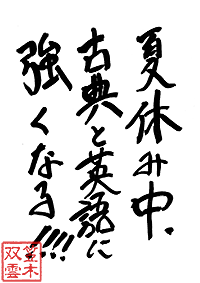 夏休み中、
古典と英語に
強くなる!!!!
笠木
双雲